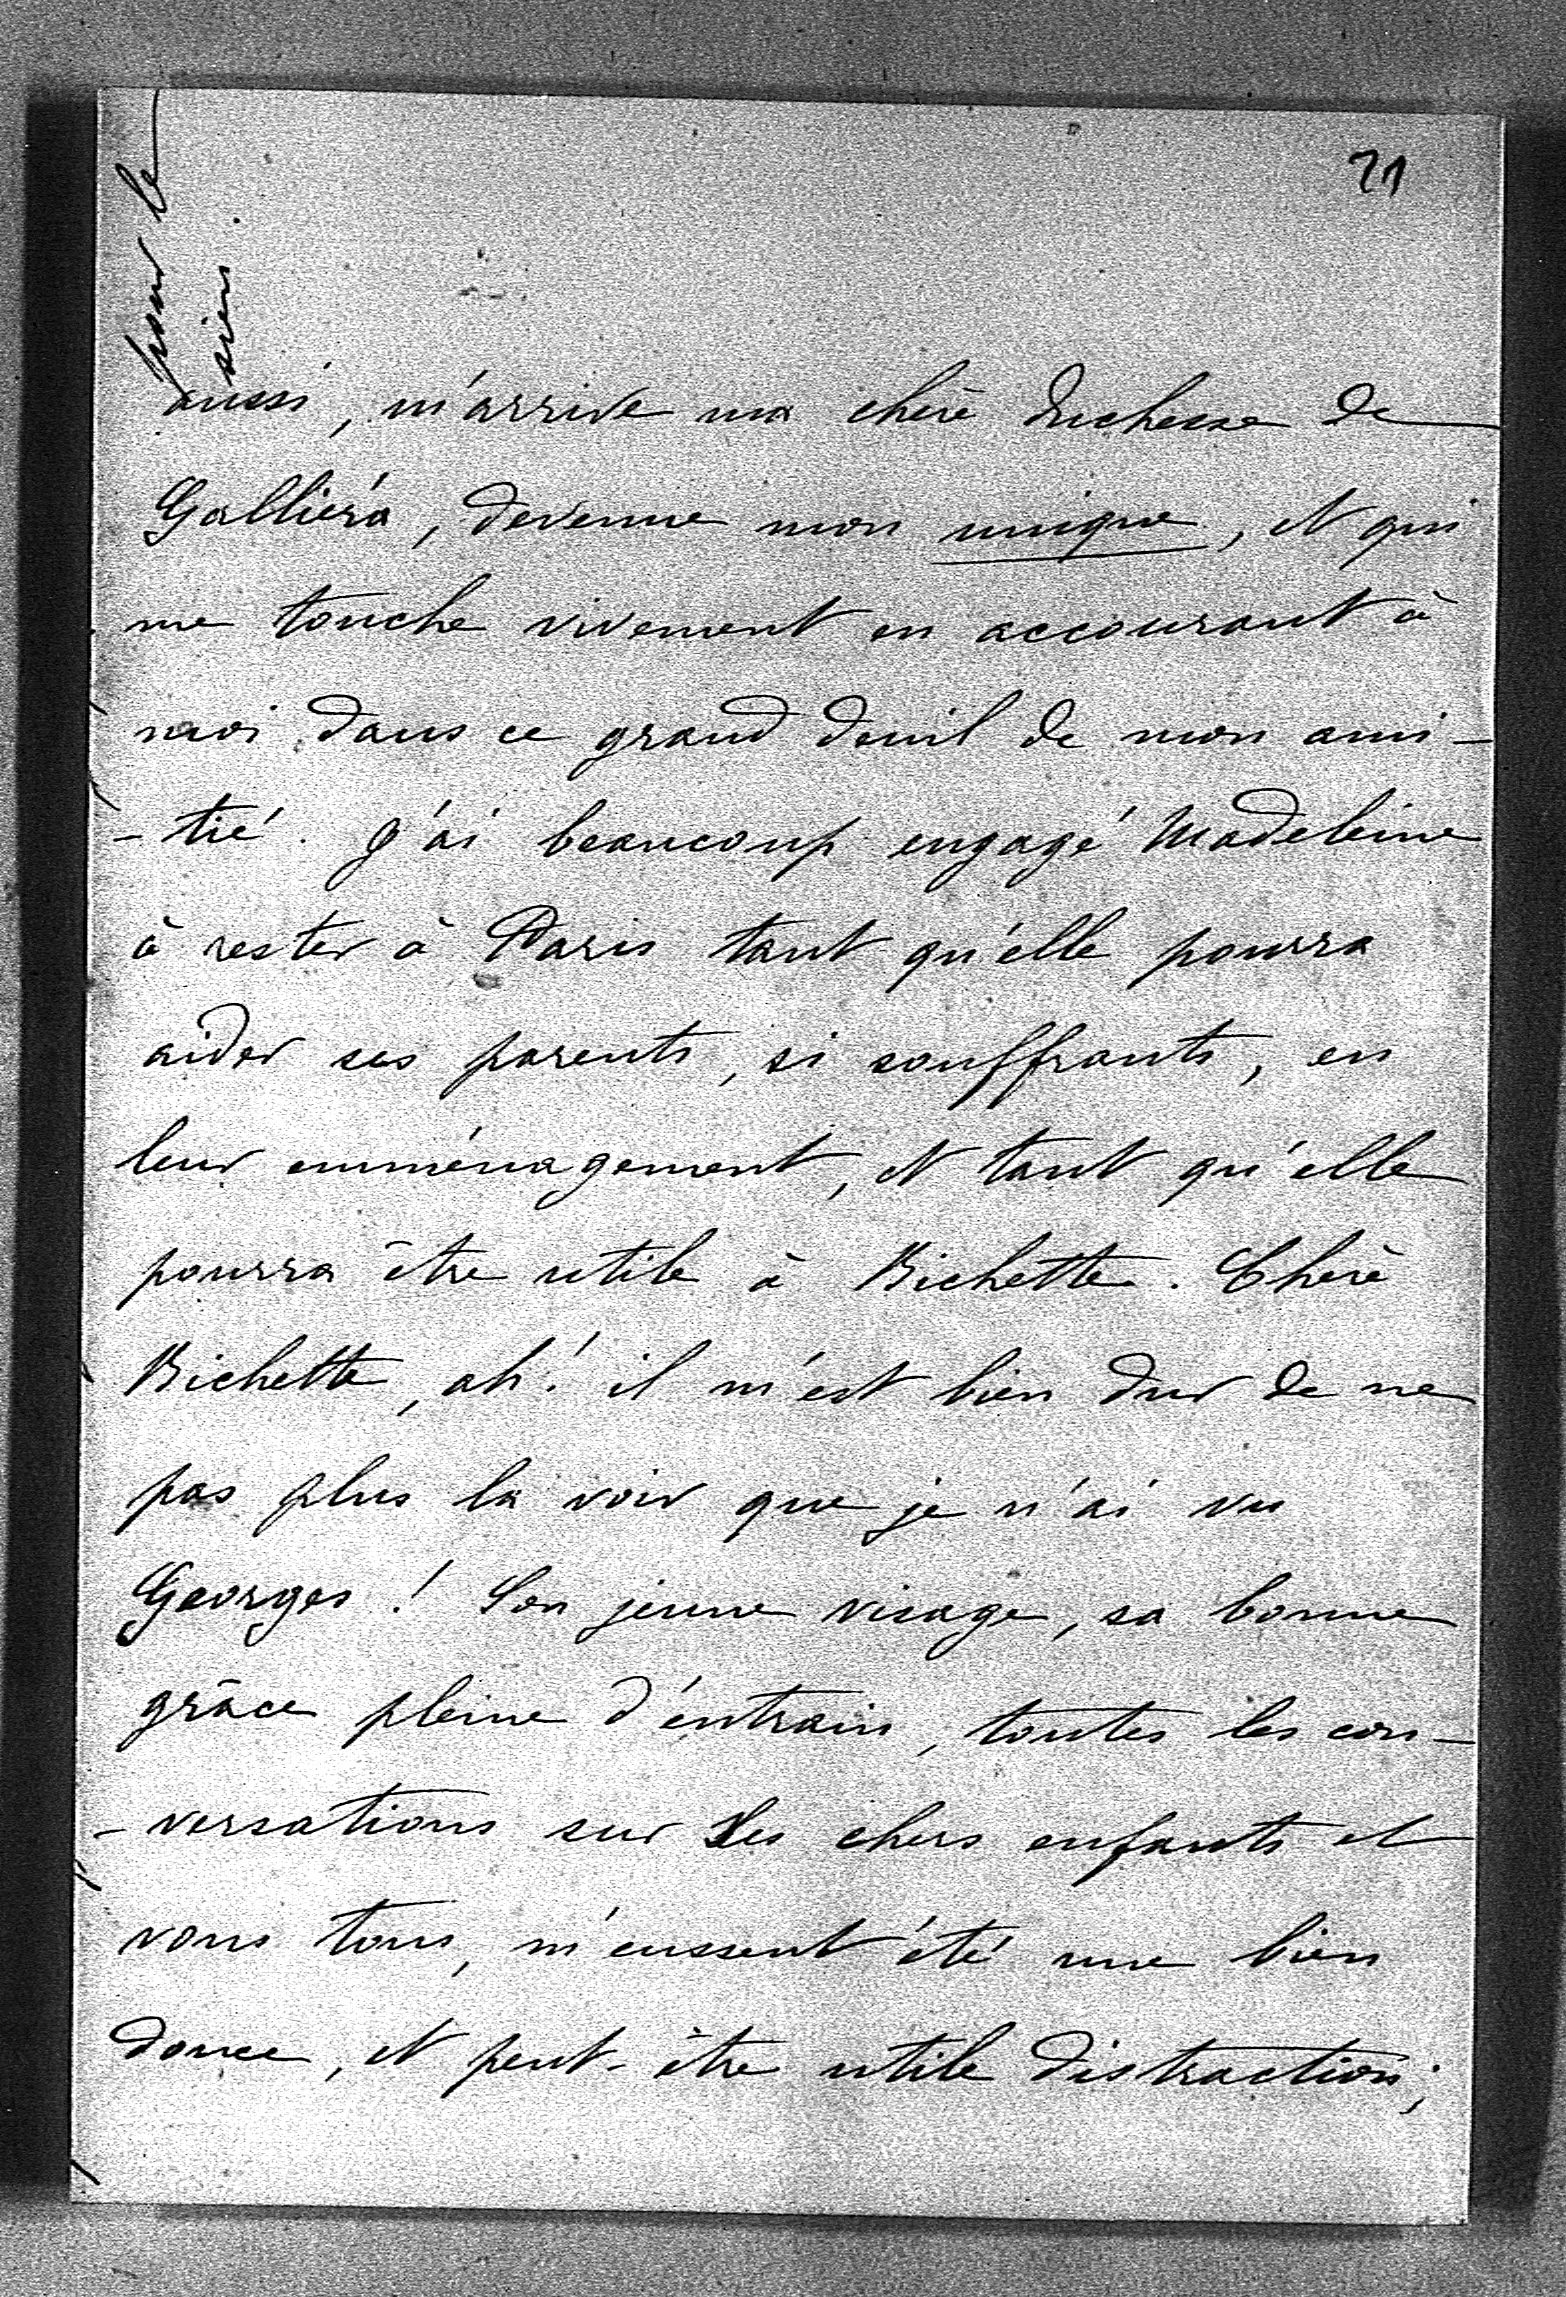 21
pour le
sien.
aussi, m'arrive ma chère duchesse de
Galliéra, devenue mon unique, et qui
me touche vivement en accourant à
moi dans ce grand deuil de mon ami-
-tié. J'ai beaucoup engagé Madeleine
à rester à Paris tant qu'elle pourra
aider ses parents, si souffrants, en
leur emménagement, et tant qu'elle
pourra être utile à Bichette. Chère
Bichette, ah! il m'est bien dur de ne
pas plus la voir que je n'ai vu
Georges! Son jeune visage, sa bonne
grâce pleine d'entrain, toutes les con-
-versations sur les chers enfants et
vous tous, m'eussent été une bien
douce, et peut-être utile distraction;